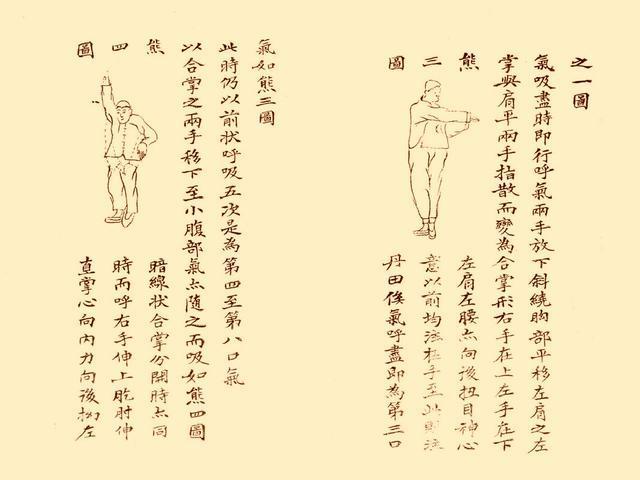 之一圖
氣吸盡時即行呼氣兩手放下斜繞胸部平移左肩之左
掌與肩平兩手指散而變為合掌形右手在上左手在下
熊三圖
左肩左腰点向後扭目神心
意以前均注在手至此則注
丹田俟氣呼盡即為第三口
氣如熊三圖
此時仍以前狀呼吸五次是為第四至第八口氣
以合掌之兩手移下至小腹部氣点随之而吸如熊四圖
熊四圖
暗線狀合掌分開時点同
時而呼右手伸上肐肘伸
直掌心向內力向後拗左